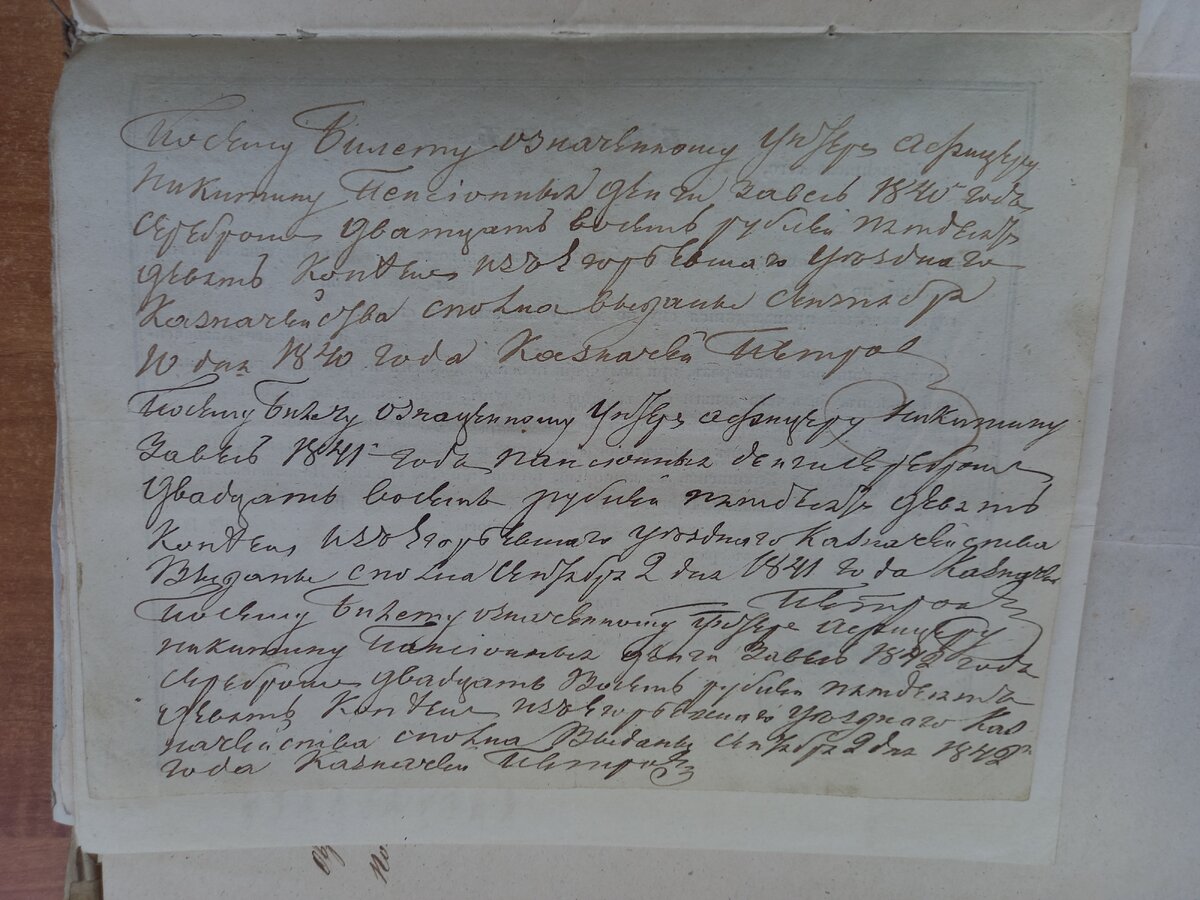 Посему Билету означенному Унтеръ афицеру
никитину Пенсіонныя денги завесь 1840 годъ
серебромъ дватцать восемь рублей пятдесятъ
девять Копѣекъ изъ Егорьевшаго уѣзднаго
Казначейства сполна выданы сентября
10 дня 1840 года Казначей Петровъ
Посему Билету означенному Унтеръ афицеру Никитину
завесь 1841 годъ пансіонныя денги серебромъ
двадцать восемь рублей пятдесятъ девять
Копѣекъ изъ Егорьевшаго уѣзднаго Казначейства
Выданы сполна Сентября 2 дня 1841 года Казначей
Петровъ
Посему Билету означенному Унтеръ афицеру
никитину Пансіонныя денги завесь 1842 годъ
серебромъ двадцать Восемь рублей пятдесятъ
девять Копѣекъ изъ Егорьевшаго уѣзднаго Каз
начейства сполна Выданы сентября 2 дня 1842
года Казначей Петровъ